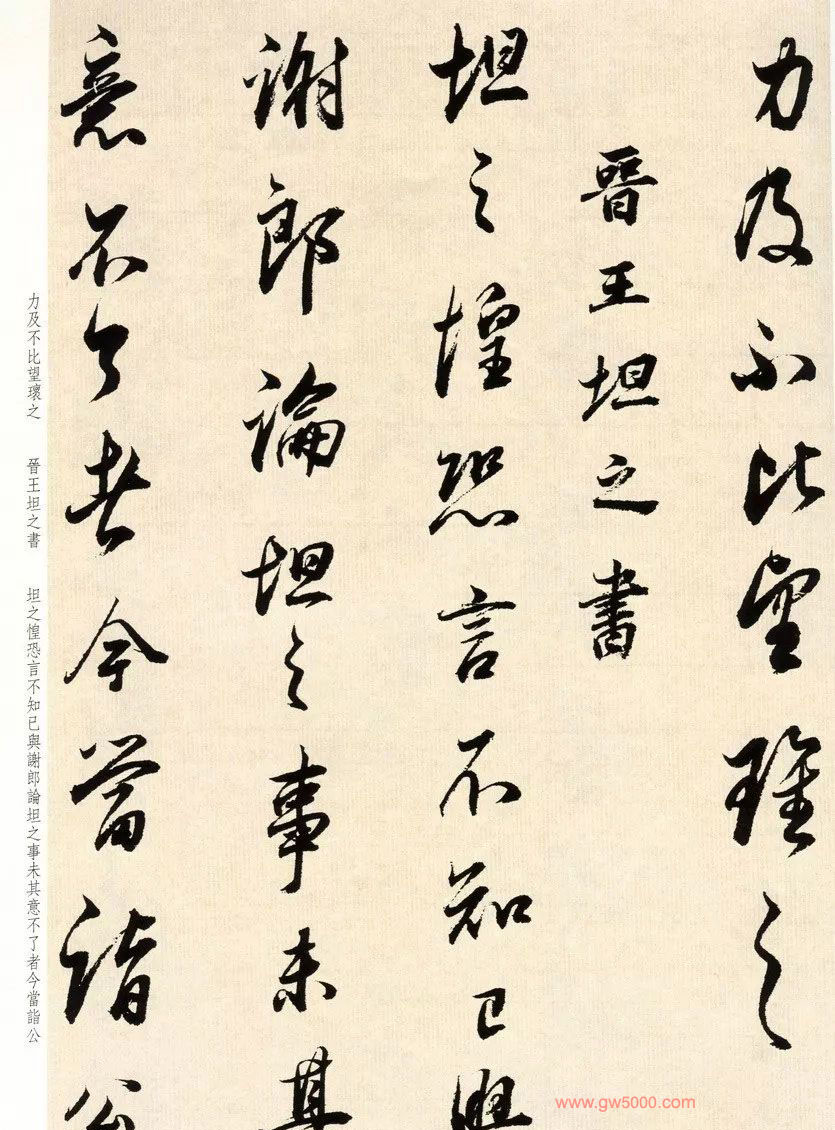 力及不比望瓌之
晉王坦之書
坦之惶恐言不知已與
謝郎論坦之事未其
意不了者今當詣公
力及不比望瓌之　晉王坦之書　坦之惶恐言不知已與謝郎論坦之事未其意不了者今當詣公
www.gw5000.com